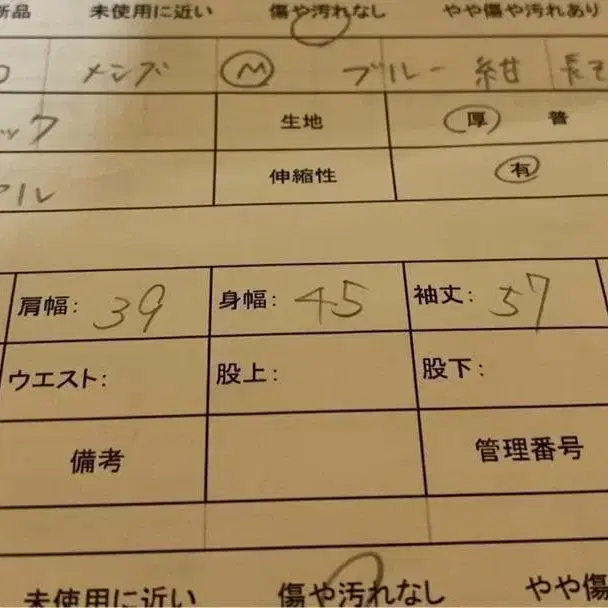 新品 未使用に近い 傷や汚れなし やや傷や汚れあり
メンズ M ブルー 紺 長そ
ック 生地 厚 普
アル 伸縮性 有
肩幅: 39 身幅: 45 袖丈: 57
ウエスト: 股上: 股下:
備考 管理番号
未使用に近い 傷や汚れなし やや傷